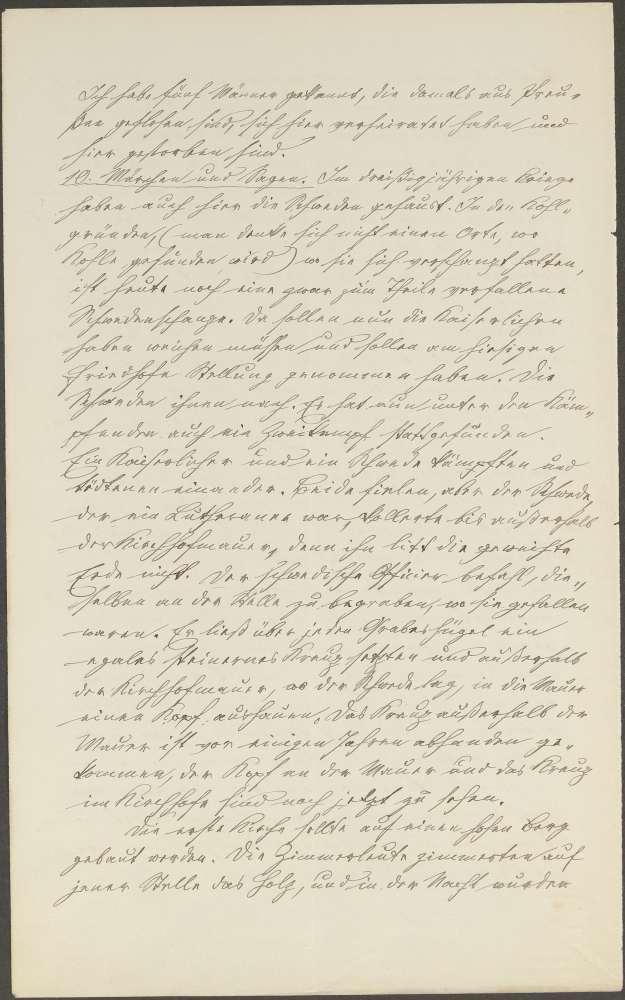 Ich habe fünf Männer gekannt, die damals aus Preu-
ßen geflohen sind, sich hier verheiratet haben und
hier gestorben sind.
10. Märchen und Sagen. Im dreißigjährigen Kriege
haben auch hier die Schweden gehaust. In den Kohl-
gründen, (man denke sich nicht einen Orte, wo
Kohle gefunden wird) wo sie sich verschanzt hatten,
ist heute noch eine zwar zum Theile verfallene
Schwedenschanze. Da sollen nun die Kaiserlichen
haben weichen müssen und sollen am hiesigen
Friedhofe Stellung genommen haben. Die
Schweden ihnen nach. Es hat nun unter den Käm-
pfenden auch ein Zweikampf stattgefunden.
Ein Kaiserlicher und ein Schwede kämpften und
tödteten einander. Beide fielen, aber der Schwede,
der ein Lutheraner war, kollerte bis außerhalb
der Kirchhofmauer, denn ihn litt die geweihte
Erde nicht. Der schwedische Officier befahl, die-
selben an der Stelle zu begraben, wo sie gefallen
waren. Er ließ über jeden Grabeshügel ein
egales steinernes Kreuz setzten und außerhalb
der Kirchhofmauer, wo der Schwede lag, in die Mauer
einen Kopf aushauen. Das Kreuz außerhalb der
Mauer ist vor einigen Jahren abhanden ge-
kommen, der Kopf an der Mauer und das Kreuz
im Kirchhofe sind noch jetzt zu sehen.
Die erste Kirche sollte auf einen hohen Berg
gebaut werden. Die Zimmerleute zimmerten auf
jener Stelle das Holz, und in der Nacht wurden